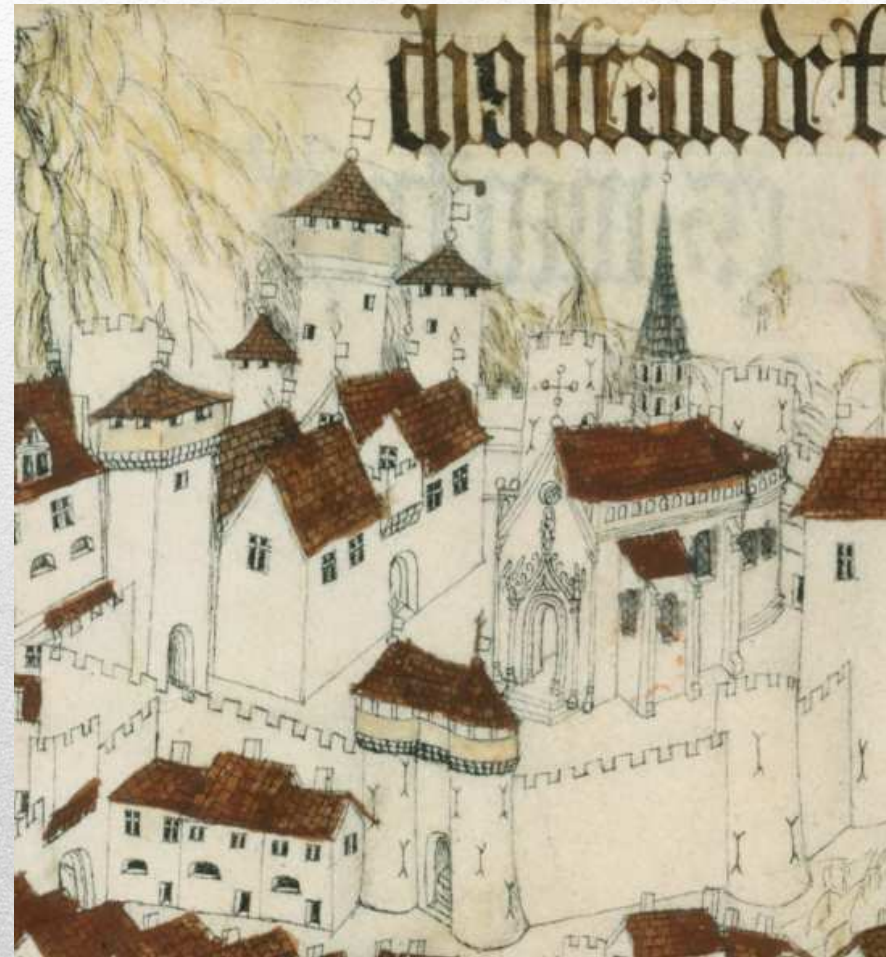 chasteau de